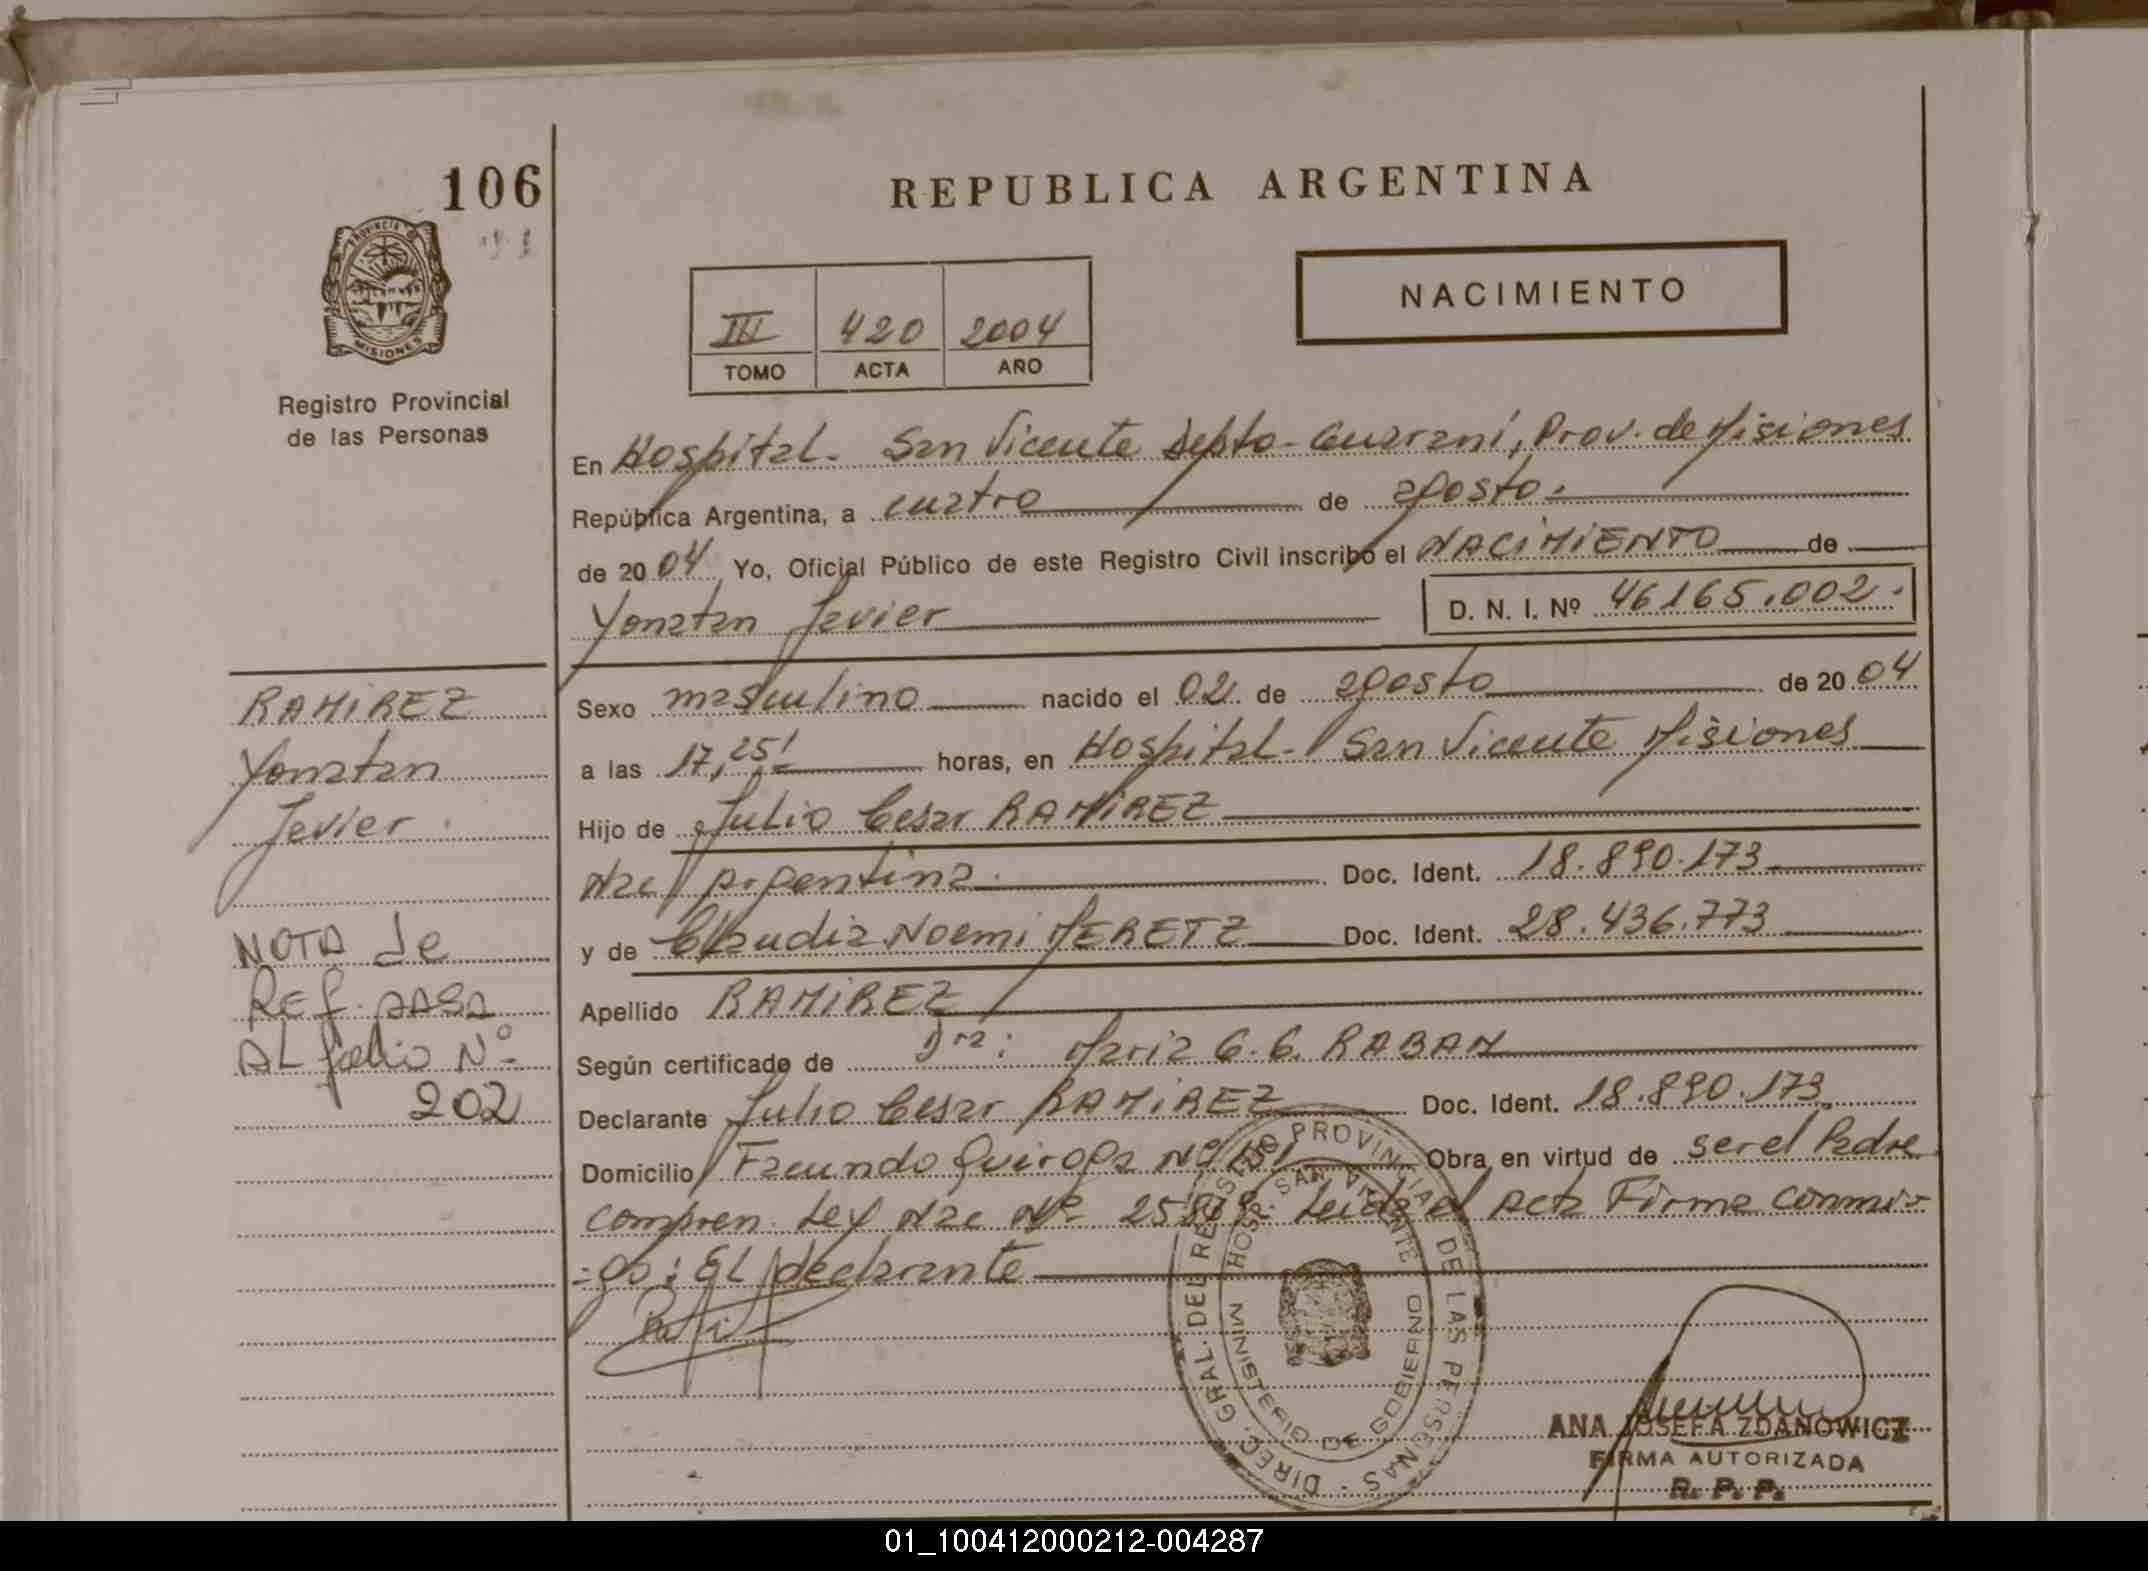 106
REPUBLICA ARGENTINA
PROVINCIA DE
MISIONES
Registro Provincial
de las Personas
III 420 2004
TOMO ACTA AÑO
NACIMIENTO
En Hospital. San Vicente Depto- Guaraní, Prov. de Misiones
República Argentina, a cuatro de agosto.
de 2004, Yo, Oficial Público de este Registro Civil inscribo el NACIMIENTO de
Yonatan Javier D. N. I. Nº 46165.002.
RAMIREZ
Yonatan
Javier.
NOTA de
REF. pasa
AL folio Nº
202
Sexo masculino nacido el 02 de agosto de 2004
a las 17,25! horas, en Hospital- San Vicente Misiones
Hijo de Julio Cesar RAMIREZ
Nac Argentina. Doc. Ident. 18.890.173
y de Claudia Noemi MERETZ Doc. Ident. 28.436.773
Apellido RAMIREZ
Según certificado de Dra: Maria G. G. RABAN
Declarante Julio Cesar RAMIREZ Doc. Ident. 18.890.173.
Domicilio Facundo Quiroga Nº Obra en virtud de ser el Padre
Compren. Ley Nac Nº Leida el Acta Firma conmi-
-go: EL declarante
DIREC. GRAL. DEL REGISTRO PROVINCIAL DE LAS PERSONAS -
HOSP. SAN VICENTE
MINISTERIO DE GOBIERNO
ANA JOSEFA ZDANOWICZ
FIRMA AUTORIZADA
R. P. P.
01_100412000212-004287